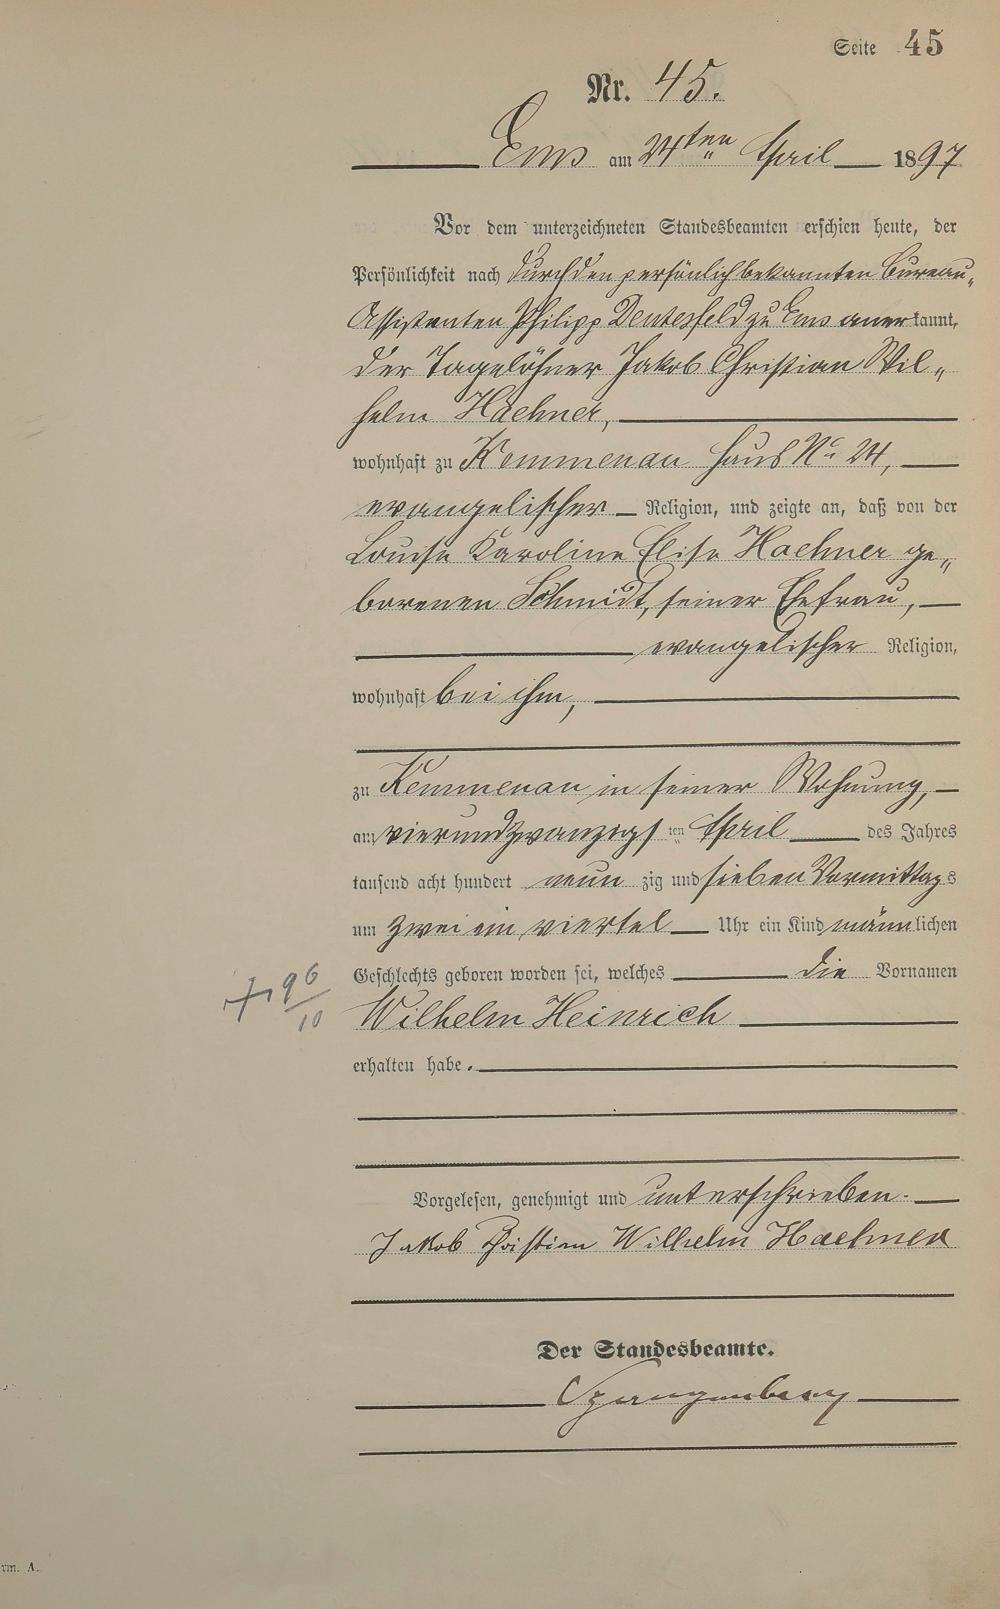 Seite 45
Nr. 45.
Ems am 24ten April 1897
Vor dem unterzeichneten Standesbeamten erschien heute, der
Persönlichkeit nach durch den persönlich bekannten Bureau-
Assistenten Philipp Deutesfeld zu Ems anerkannt,
der Tagelöhner Jakob Christian Wil-
helm Haehner,
wohnhaft zu Kemmenau Haus No 24,
evangelischer Religion, und zeigte an, daß von der
Louise Karoline Elise Haehner ge-
borenen Schmidt, seiner Ehefrau,
evangelischer Religion,
wohnhaft bei ihm,
zu Kemmenau in seiner Wohnung,
am vierundzwanzigsten April des Jahres
tausend acht hundert neunzig und sieben Vormittags
um zwei ein viertel Uhr ein Kind männlichen
Geschlechts geboren worden sei, welches die Vornamen
+ 9 6/10
Wilhelm Heinrich
erhalten habe.
Vorgelesen, genehmigt und unterschrieben.
Jakob Christian Wilhelm Haehner
Der Standesbeamte.
Spangenberg
rm. A.